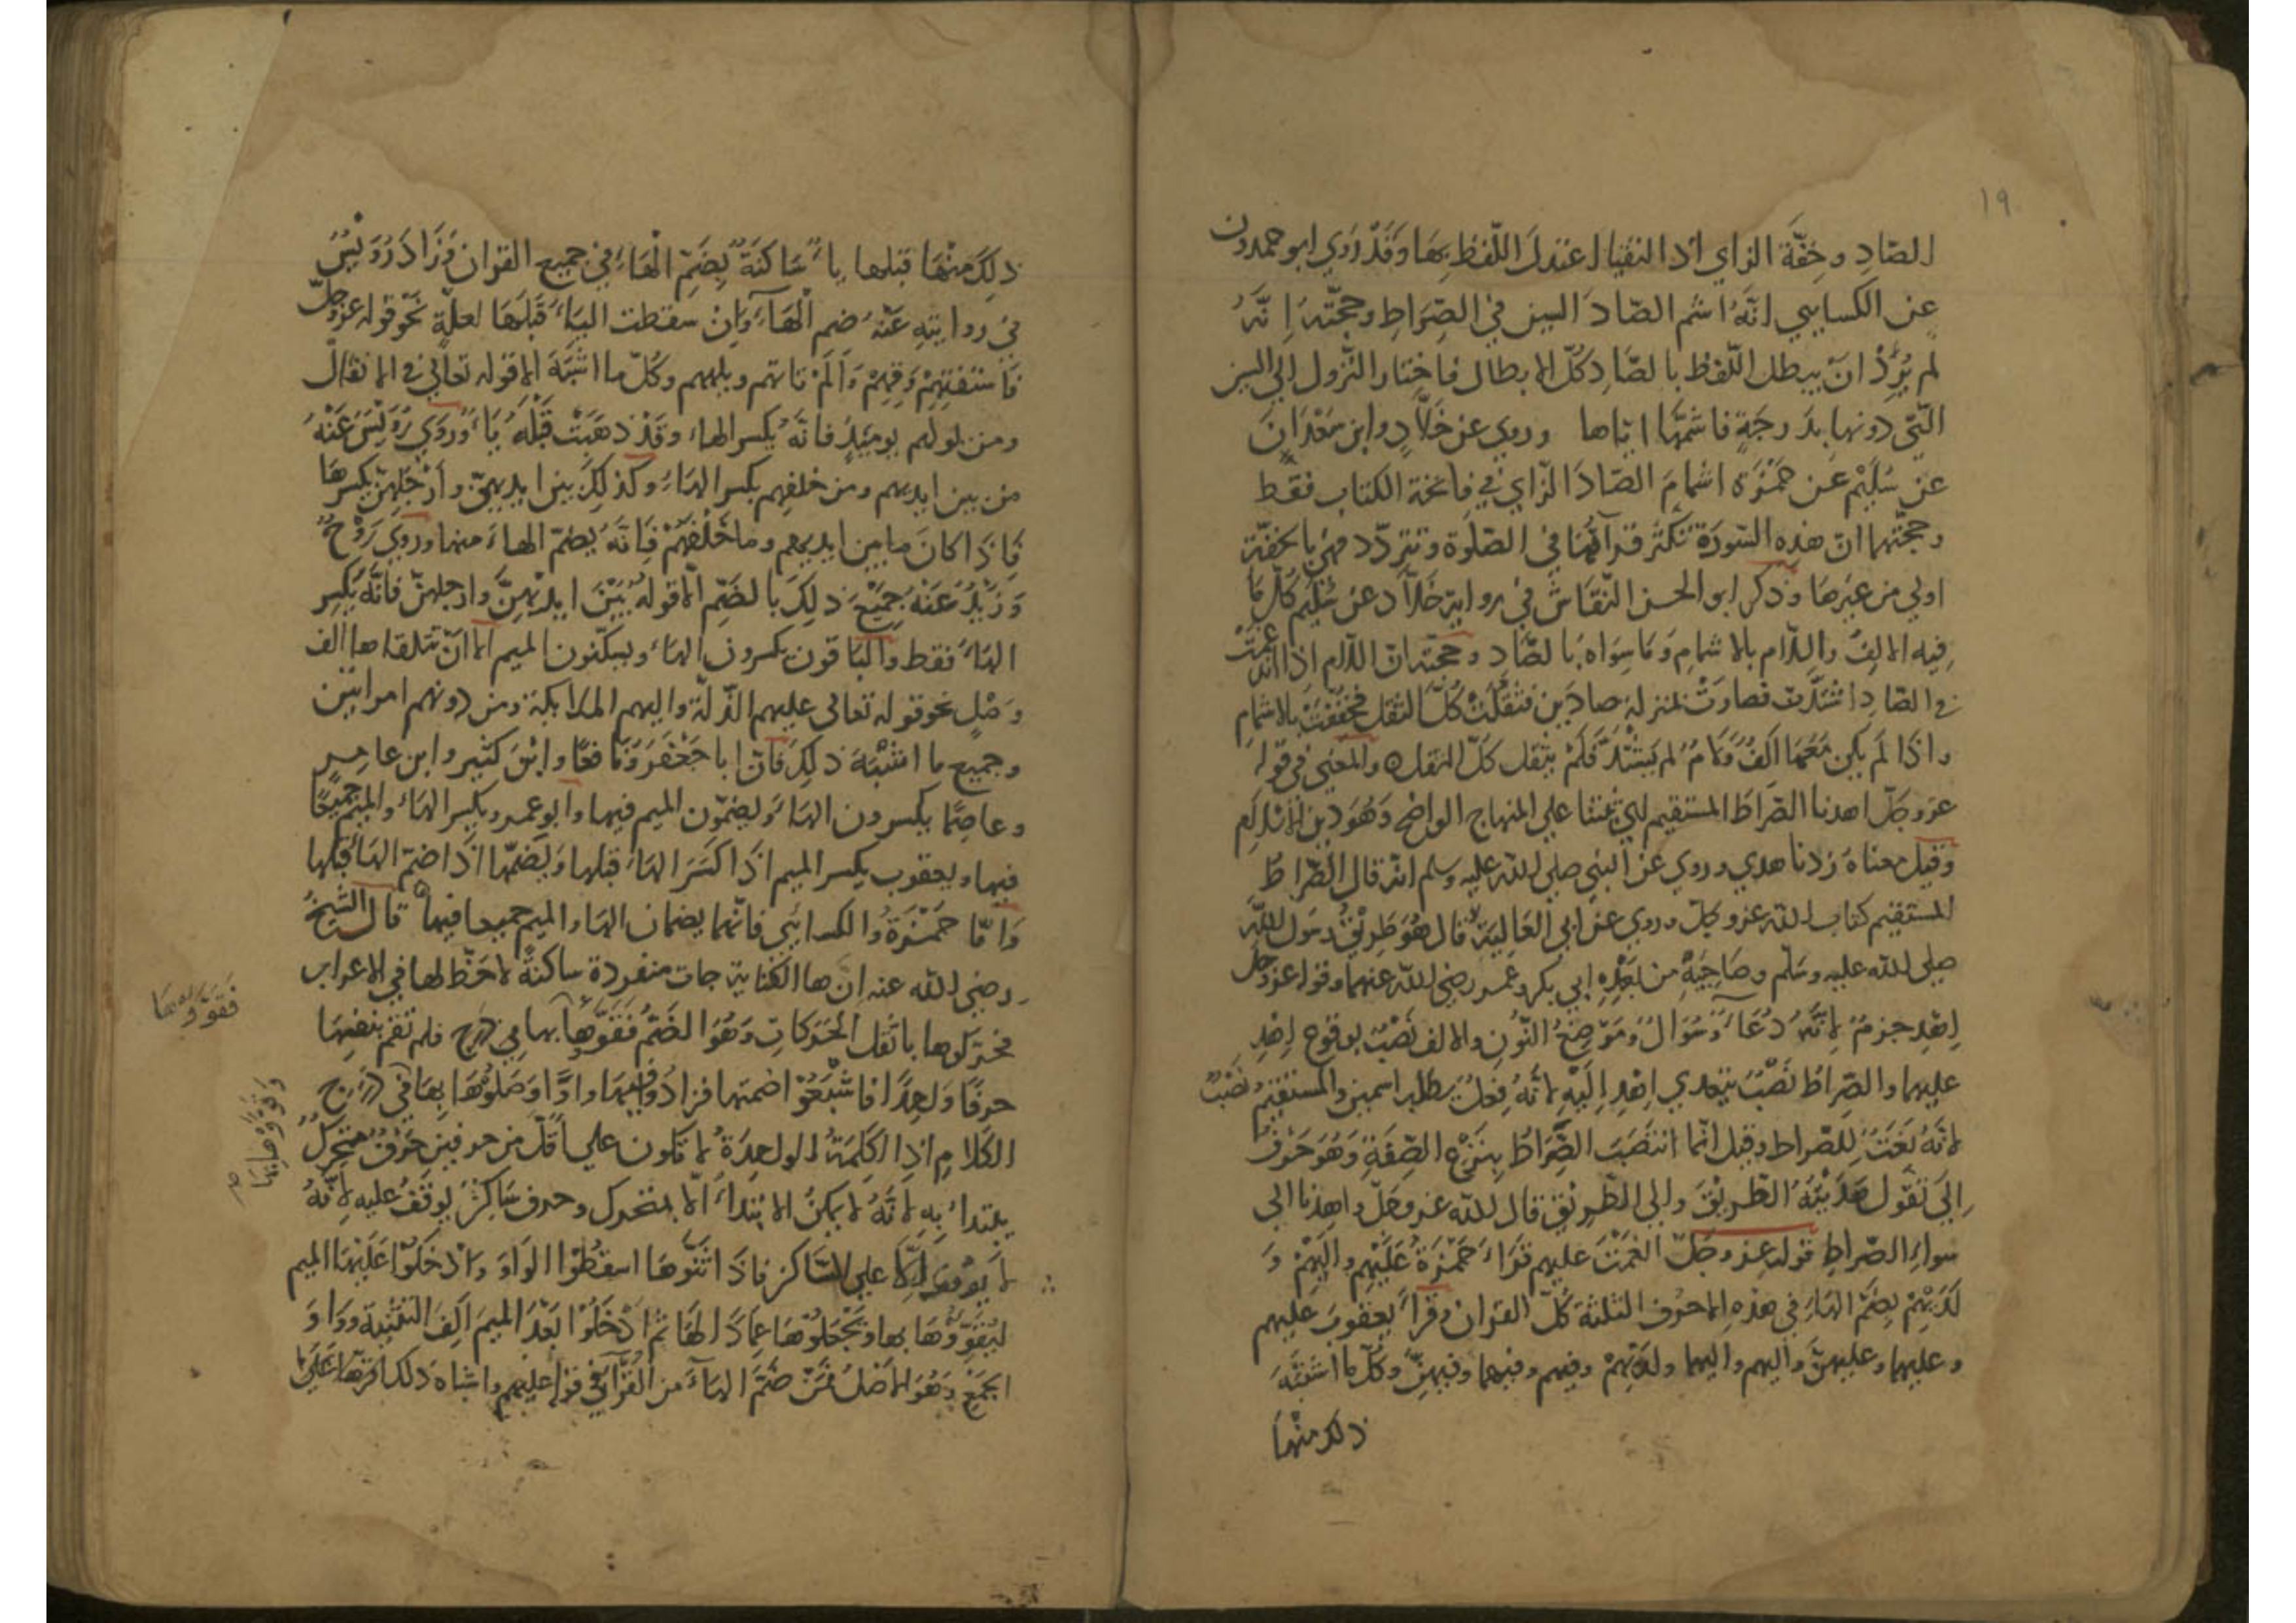 ١٩
الصّادِ وخِفَّة الزاي اذ النقيا عند اللّفظ بِهَا وَقَدْ رَوَي ابو حمدون
عن الكسايي انَّهُ اشم الصّادَ السين في الصِّرَاطِ وحجّته انَّهُ
لم يُرِدْ انْ يبطل اللّفظ بالصَّادِ كلّ الابطال فاختار النّزول الي السين
التّي دونها بدَرجَةٍ فاشمَّها ايّاها وروي عن خَلاَّدٍ وابن سَعْدَانَ
عن سُلَيْم عَن حَمْزَة اشمامَ الصّادَ الزّاي في فاتحة الكتاب فقط
وحجّتهما انّ هذه السّورَة تكثر قراتُهَا في الصّلَوة وتتردّد فهي بالخفّة
اولي من غيرهَا وَذكر ابو الحسن النّقاش في رواية خَلاَّد عن سُلَيْم كلّ مَا
فيه الالفُ واللام بالاشمامِ وَمَا سِوَاه بالصّادِ وحجته ان اللام اذا اندغمتْ
في الصّادِ اشتدّت فصارتْ بمنزلة صادَين فثقلتْ كُلّ الثقل فخففتْ بالاشمامِ
واذَا لَم يكن مَعَهَا الفٌ وَلامٌ لم يَشتدَّ فَلَمْ يثقل كلّ الثقل والمعني في قوله
عز وجلّ اهدنا الصّراطَ المستقيم اي ثبّتنا علي المنهاج الواضح وَهُوَ دين الاسلامِ
وقيل معناهُ زدنا هدي وروي عن النبي صلي الله عليه وسلم انه قال الصّراطُ
المستقيم كتاب الله عز وجلّ وروي عن ابي العَالِيَة قال هُوَ طَرِيْقُ رسَول اللّه
صلي الله عليه وسَلّم وصَاحِبَيْهِ من بَعْدِهِ ابي بكر وعمر رضي الله عنهما وقوله عز وجلّ
اِهْدِ جزمٌ لاِنَّهُ دُعَاءٌ وَسُوَالٌ وَمَوْضِعُ النُّونِ والالف نَصْبٌ بوقوع اِهْدِ
عليهما والصِّرَاطَ نَصْبٌ بتعدي اِهْدِ اِلَيْهِ لانَّهُ فِعلٌ يطلب اسمين والمستقيم نَصْبٌ
لانَّهُ نَعْتٌ للصّراط وقيل انّما انتصَبَ الصِّرَاطُ بِنَزْعِ الصِّفَةِ وَهُوَ حَرْفُ
اِلَي تَقُول هَدَيْتُهُ الطّريْقَ والي الطّريْقِ قال الله عز وجلّ واهدنا الي
سواءِ الصّراطِ قوله عز وجَلّ انعمْتَ عليهم قرَاءَ حَمْزَةُ عَلَيْهم والَيْهُمْ وَ
لَدَيْهُمْ بِضَمّ الهَاءِ في هذهِ الاحرُف الثلثة كلّ القران وقَرَأَ يعقوب عليهم
وعليهما وعليهنّ واليهم واليهما ولدَيْهُمْ وفيهم وفيهما وفيهنّ وكلّ ما اشبَهَ
ذلك منْهَا
ذلِكَ منْهَا قبلها ياءٌ سَاكنَةٌ بضَمّ الْهَاءِ في جميع القران وَزَادَ رُوَيْسُ
في روايتِهِ عَنْهُ ضم الْهَاءِ وَاِنْ سقطت اليَاءُ قبْلَهَا لعلّةٍ نَحْو قوله عز وجلّ
فَاستفتِهِمْ وَقِهِمْ وَاَلَمْ تاتهم ويلههم وكُلّ ما اشبَهَ الا قوله تعالَي في الانفال
ومن يولهم يومئِذٍ فانّهُ يكسر الهاء وقَدْ ذهَبَتْ قَبْلَهُ يَاءٌ وَرُوَي رُوَيْسُ عَنْهُ
من بين ايديهم ومن خلفهم بكسر الهَاءِ وكذلِكَ بين ايديهنّ وارْجُلِهِنّ يكسرهَا
فَاذَا كانَ ما بين ايديهم وما خَلْفَهُمْ فَانَّهُ يضمّ الهاءَ منهما وروي رَوْحٌ
وَزَيْدٌ عَنْهُ جميْعَ ذلِكَ بالضَمّ الاّ قوله بَيْنَ ايديْهِنَّ وارجلهنّ فانَّهُ يَكسِر
الهَاءَ فقط والبَاقون يكسرون الهَاءَ ويسكّنون الميم الا انْ تتلقاها الف
وَصْلٍ نحو قوله تعالي عليهم الذّلّة واليهم الملايكة ومن دونهم امراتين
وجميع ما اشْبَهَ ذلِكَ فَانّ ابا جَعْفَر وَنَافعًا وابْنَ كثير وابن عامر
وعاصِمًا يكسرون الهَاءَ وَيضمّون الميم فيها وابو عمرو يكسر الهَاءَ والميم جميعًا
فيها ويعقوب يكسر الميم اذَا كسَرَ الهَاءَ قبلها وَيَضمّها اذَا ضمّ الهَاءَ قبلها
وَامّا حَمْزَةُ والكسايَي فانّهما يضمان الهَاء والميم جميعا فيها قال الشّيخُ
رضي الله عنه انّ ها الكناية جات منفردة ساكنةً لا حَظّ لها في الاعراب
فحرّكوها باثقل الحَرَكاتِ وَهُوَ الضَمُّ فَقَوَّوْهَا بها في درج فلم تقم بنفسِهَا
حرفًا وَاحِدًا فاشْبَعُوْا ضمتها فزادُوْا فيْهَا واوًا وَصَلوْهَا بِهَا في دَرْج
الكلامِ اذِ الكَلِمَةُ الواحِدَةُ لا تكون علي اَقلّ من حرفين حَرْفٌ متحركٌ
يبتداءُ بِهِ لاَنَّهُ لا يمكنُ الابتداءُ الاّ بمتحرك وحرف سَاكِنٌ يوقَفُ عليه لاِنَّهُ
لا يوقف الاّ علي السّاكن فاذَا اثنَّوهَا اسقطُوْا الوَاوَ وادْخَلوْا عَلَيْهَا الميم
ليُقَوّوْهَا بها وَيَجْعَلوْهَا عِمَادًا لهَا ثمّ ادْخَلُوْا بَعْدَ الميم اَلِفَ التثنية وواوَ
الجمْعِ وَهُوَ الاصْلُ فَمَنْ ضَمّ الهَاءَ من القرَّاءِ في قوله عليهم واشباه ذلك اقرّهَا عَلَي
فَقَوَّوْهَا